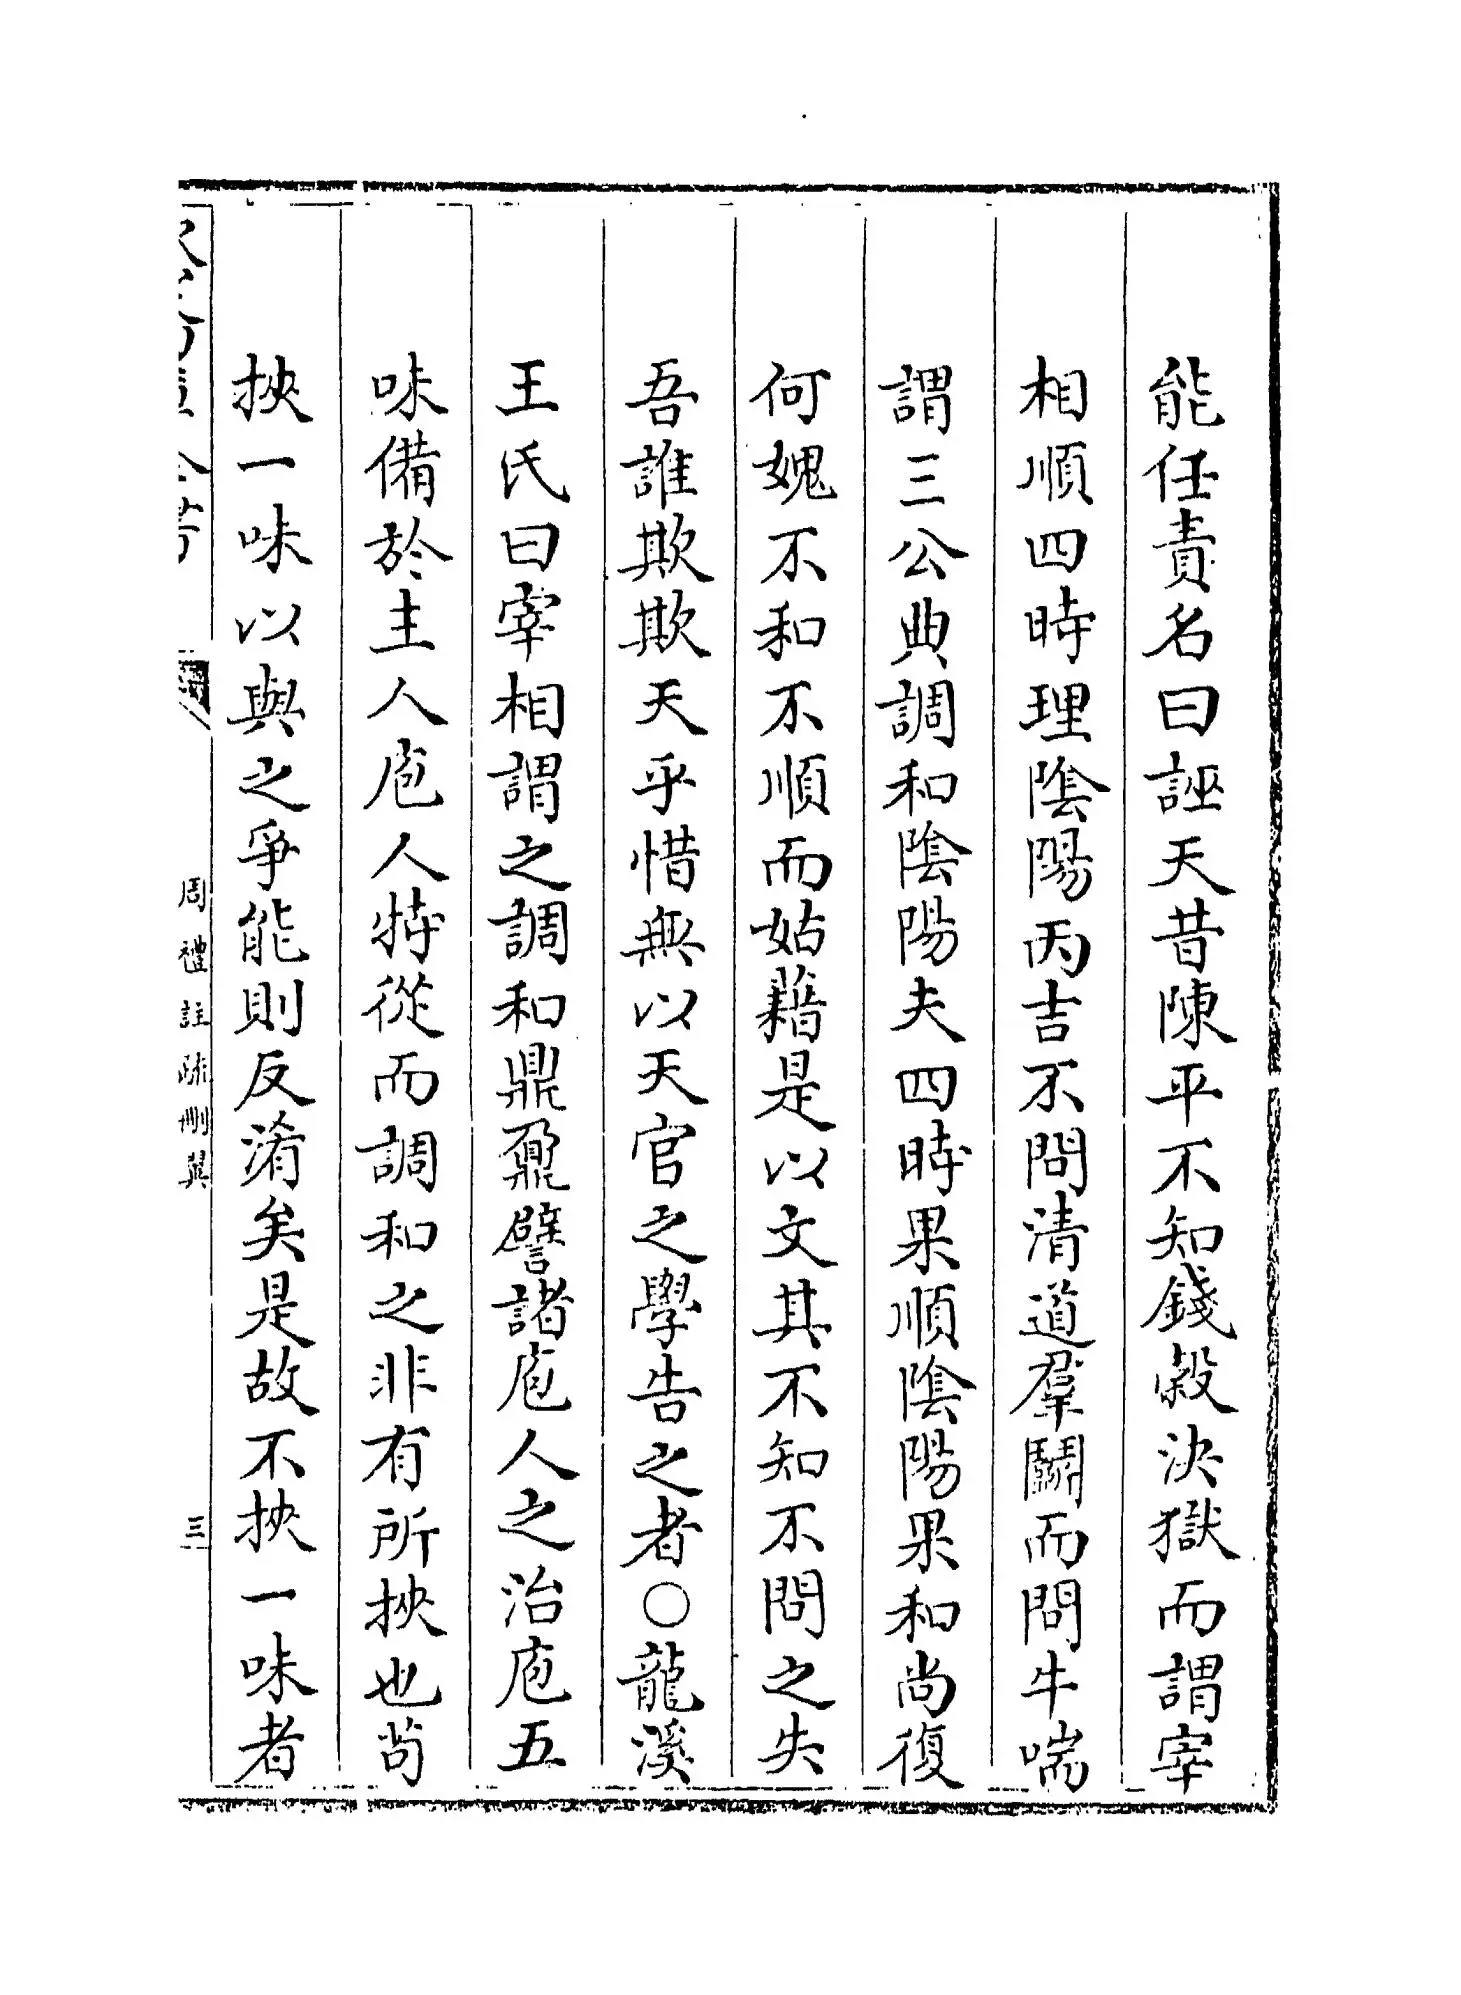 能任責名曰誣天昔陳平不知錢穀決獄而謂宰
相順四時理陰陽丙吉不問清道羣鬭而問牛喘
謂三公典調和陰陽夫四時果順陰陽果和尚復
何媿不和不順而姑藉是以文其不知不問之失
吾誰欺欺天乎惜無以天官之學告之者○龍溪
王氏曰宰相謂之調和鼎鼐譬諸庖人之治庖五
味備於主人庖人特從而調和之非有所挾也茍
挾一味以與之爭能則反淆矣是故不挾一味者
周禮註疏刪翼
三